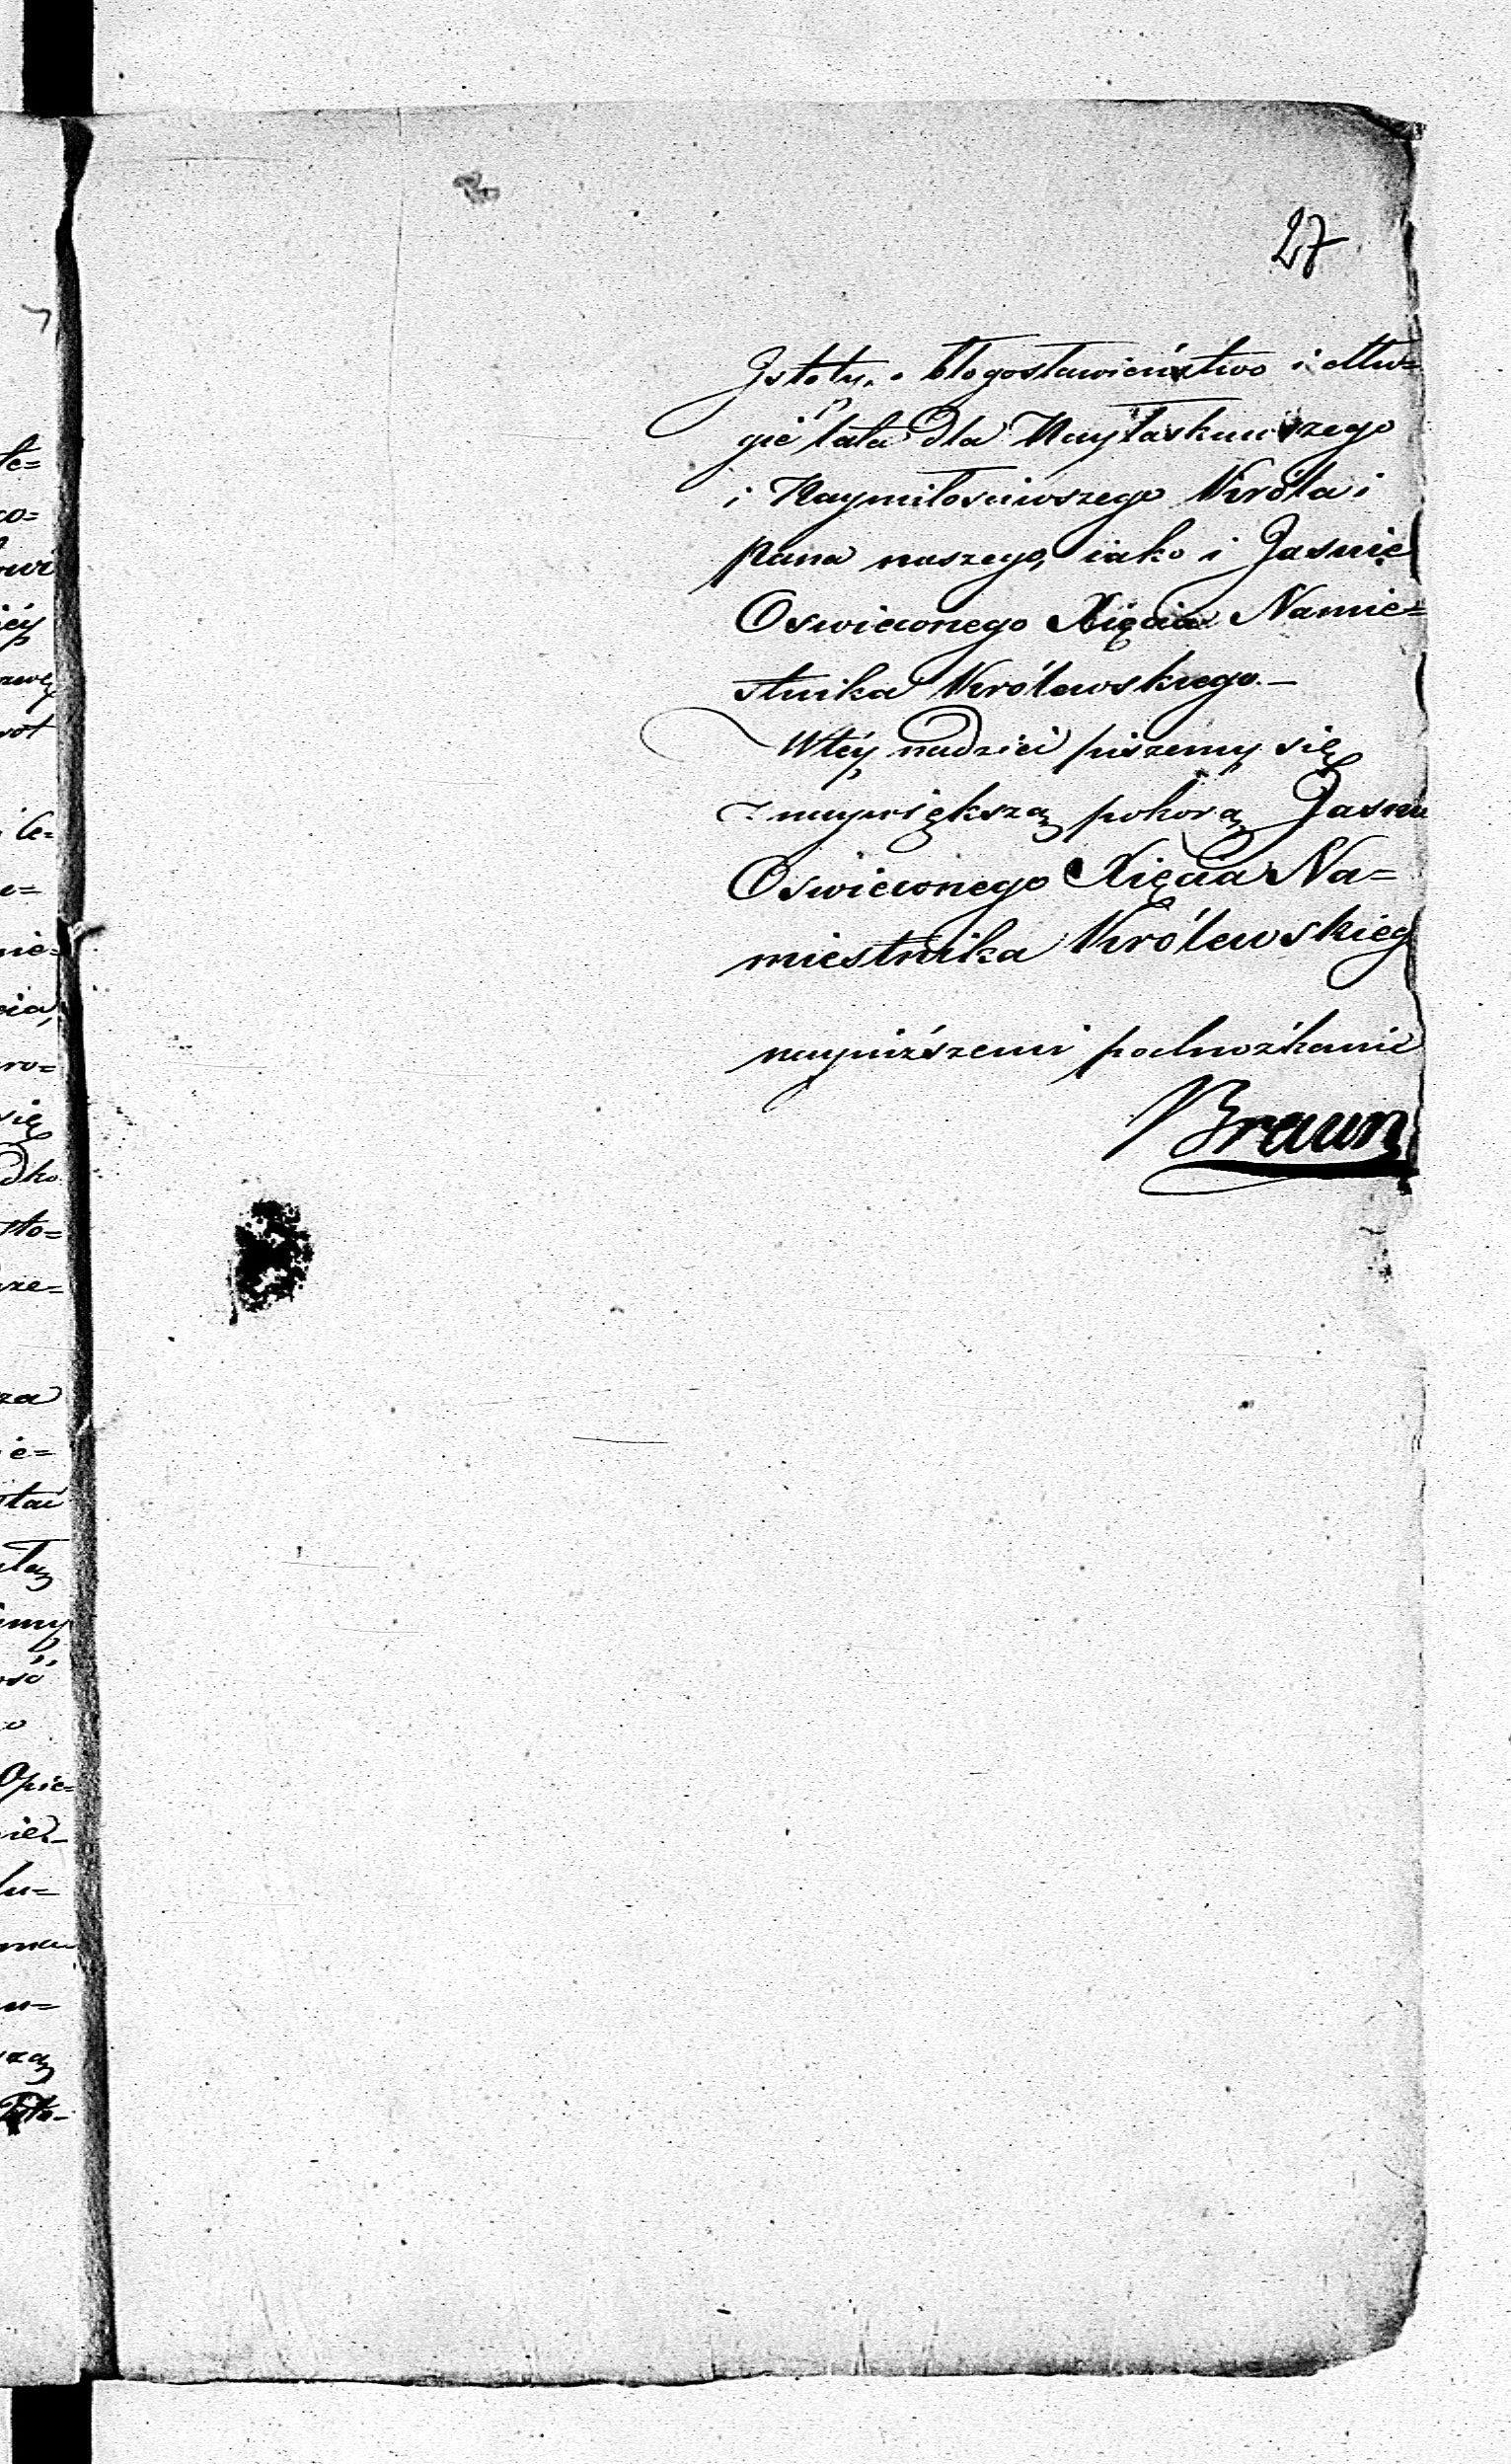 27
Jstoty, o błogosławieństwo i dłu=
gie lata dla Nayłaskawszego
i Naymiłosciwszego Króla i
Pana naszego, iako i Jasnie
Oswieconego Xięcia Namie=
stnika Królewskiego.—
Wtéy nadziei piszemy się
z naywiększą pokorą Jasnie
Oswieconego Xięcia Na=
miestnika Królewskieg
nayniższemi podnożkamie
Braun